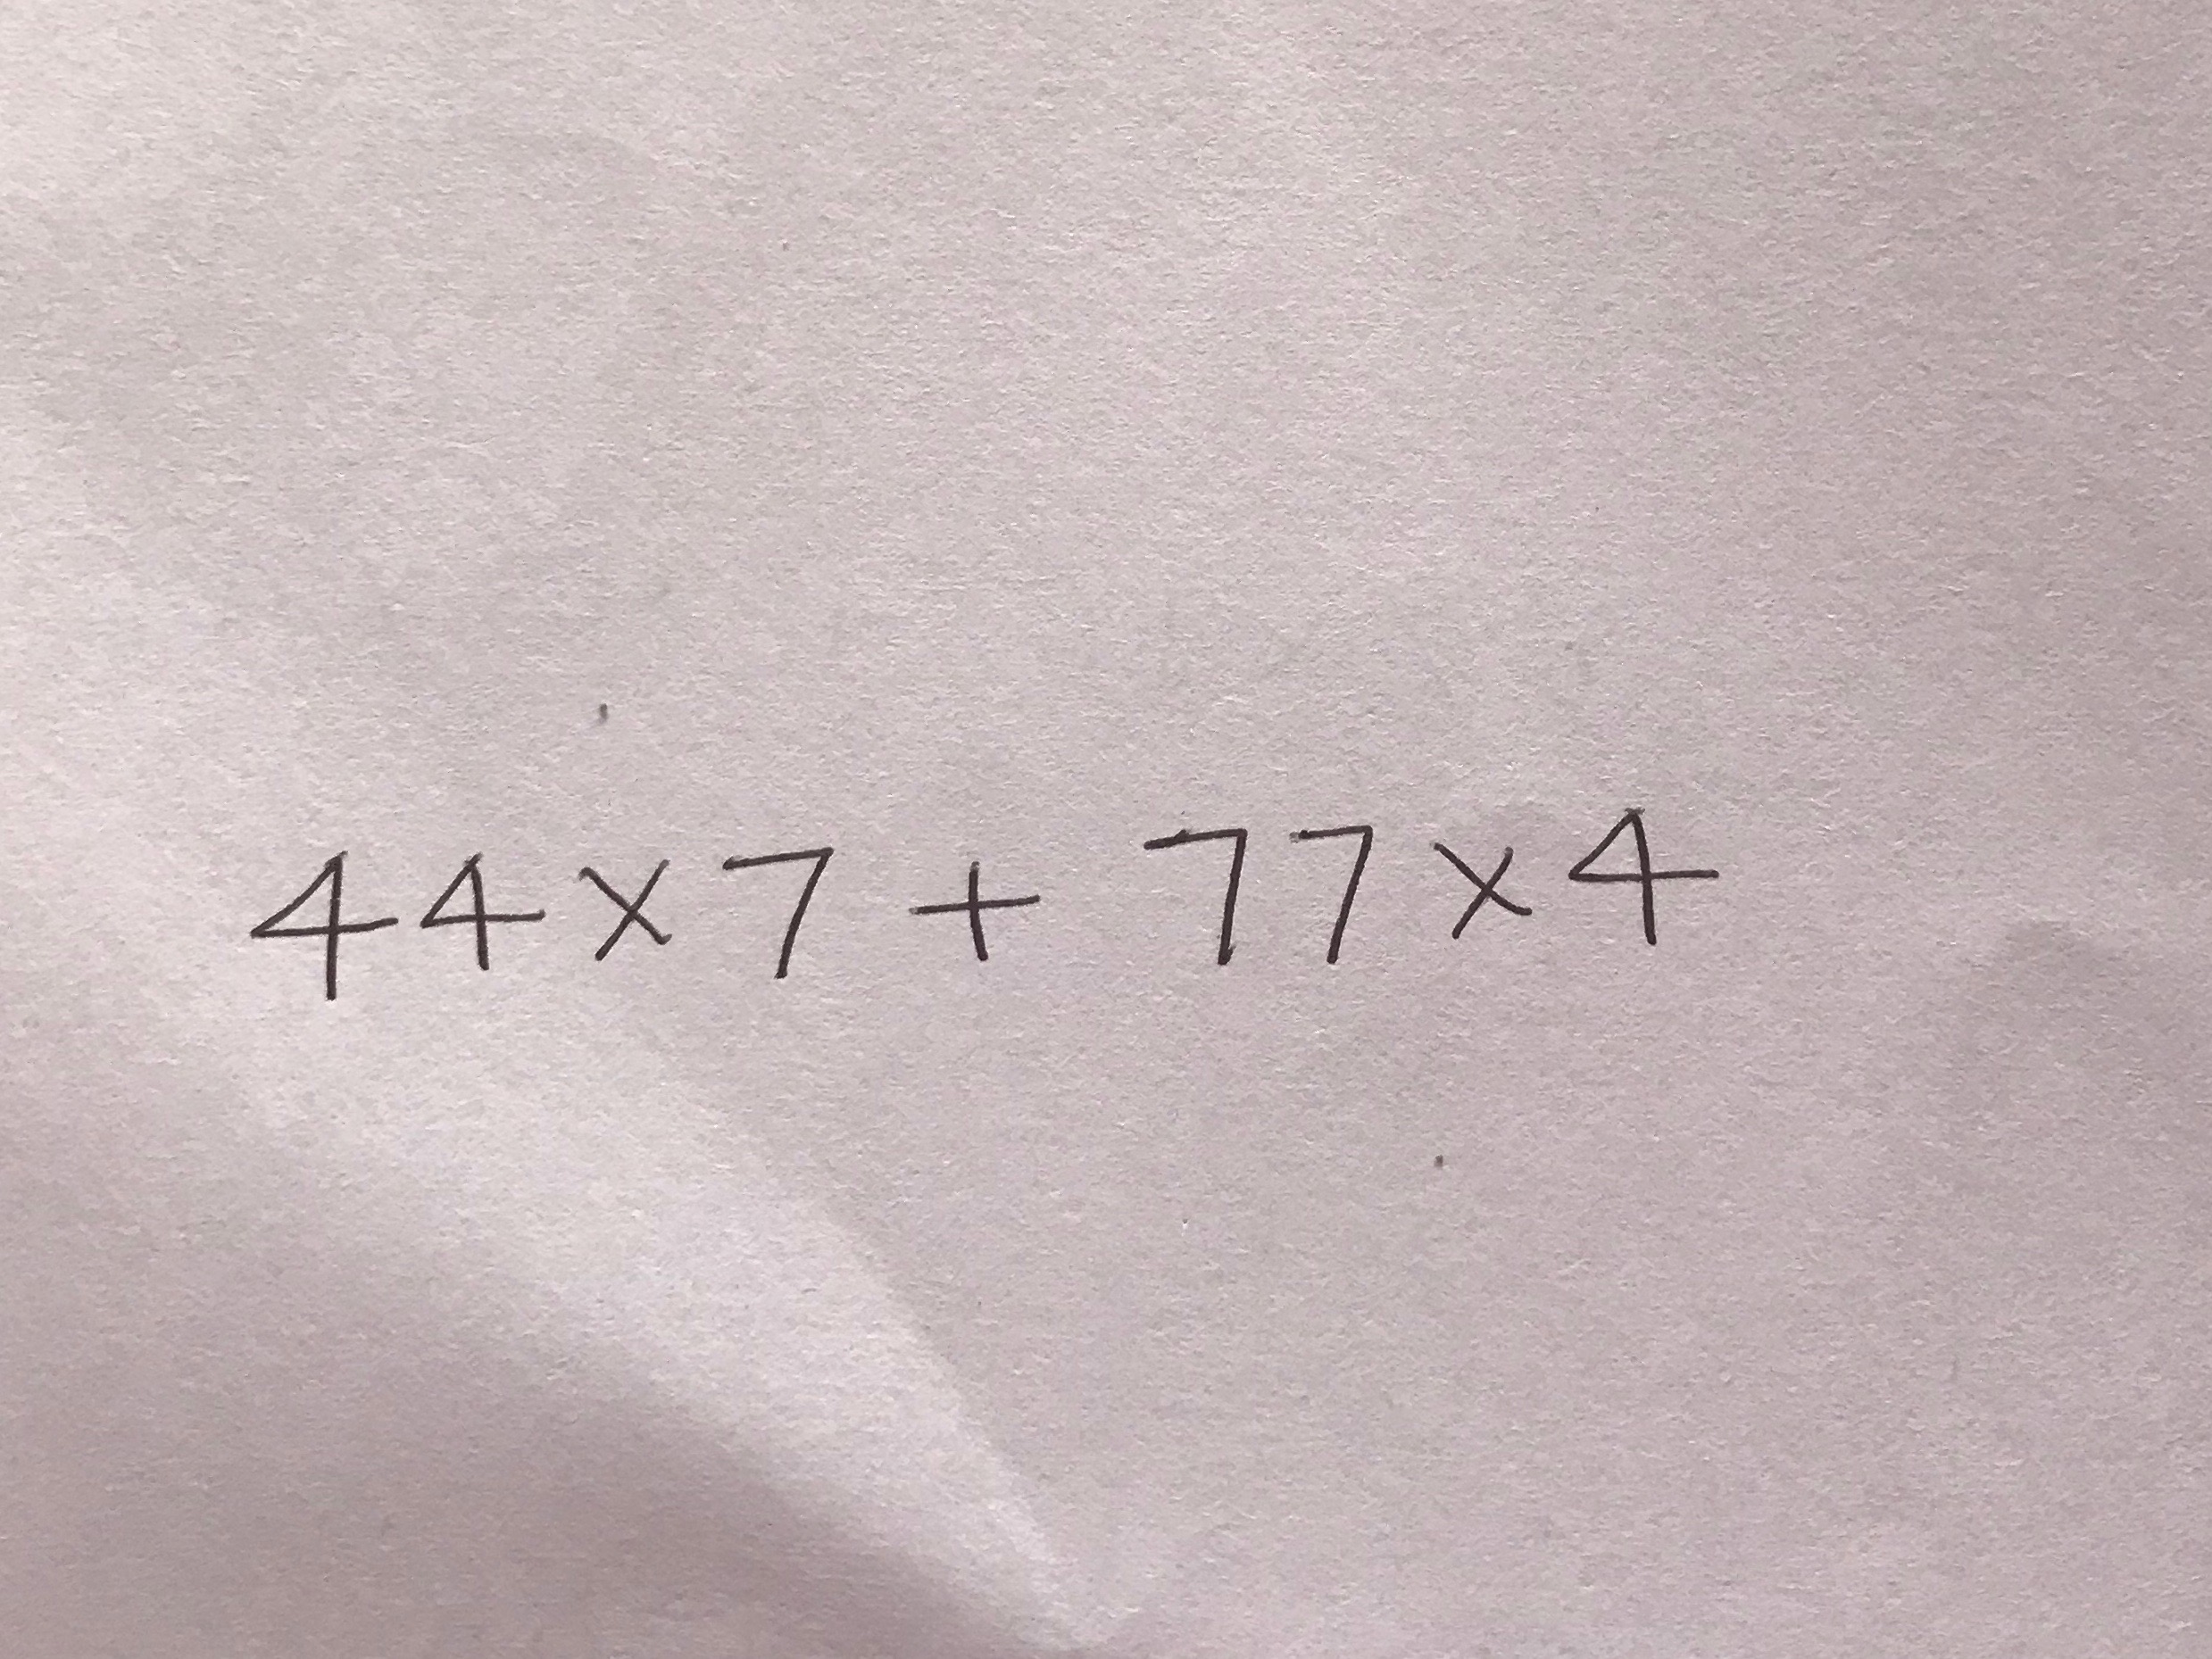 44×7 + 77×4